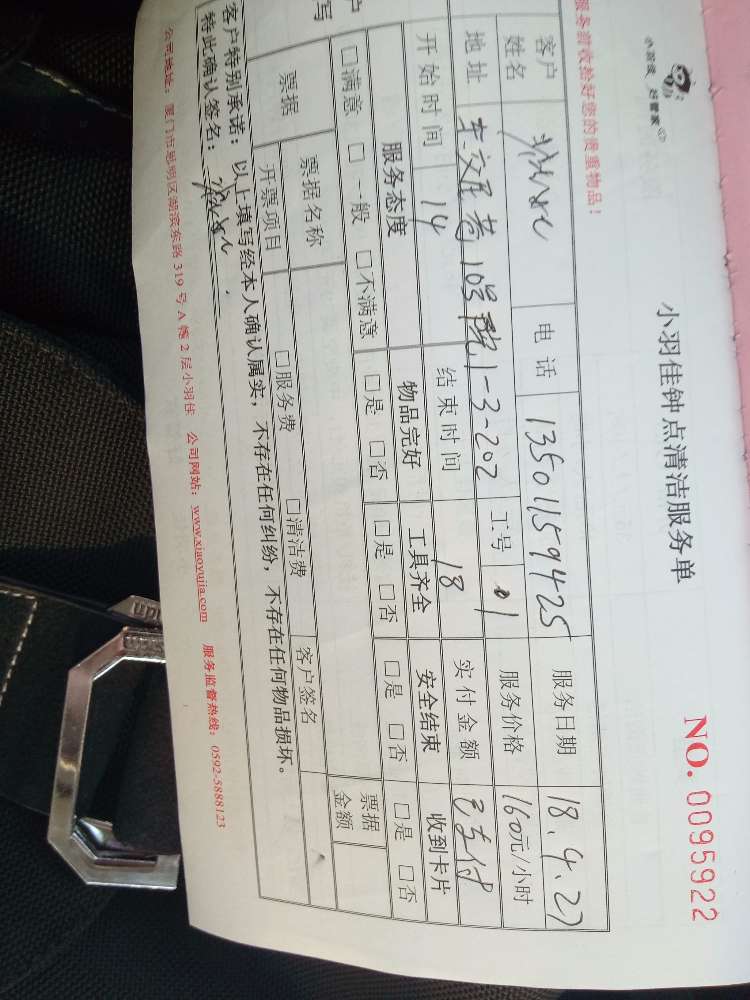 小羽佳 好管家
小羽佳钟点清洁服务单
NO. 0095922
服务前收拾好您的贵重物品!
客户姓名 电话 13501159425 服务日期 18.4.27
地址 10号院1-3-202 工号 01 服务价格 160元/小时
开始时间 14 结束时间 18 实付金额 已支付
服务态度 物品完好 工具齐全 安全结束 收到卡片
□满意 □一般 □不满意 □是 □否 □是 □否 □是 □否 □是 □否
票据 票据名称 客户签名 票据金额
开票项目 □服务费 □清洁费
客户特别承诺:以上填写经本人确认属实,不存在任何纠纷,不存在任何物品损坏。
特此确认签名:
公司地址:厦门市思明区湖滨东路319号A幢2层小羽佳 公司网站:www.xiaoyujia.com 服务监督热线:0592-5888123